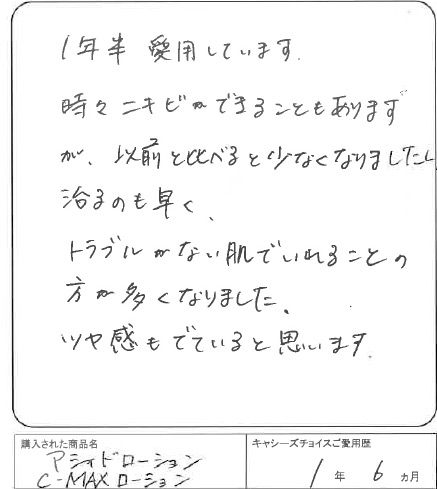 1年半 愛用しています.
時々ニキビができることもあります
が、以前と比べると少なくなりましたし
治るのも早く、
トラブルがない肌でいれることの
方が多くなりました、
ツヤ感もでていると思います.
購入された商品名
アシィドローション
C-MAXローション
キャシーズチョイスご愛用歴
1年 6ヵ月